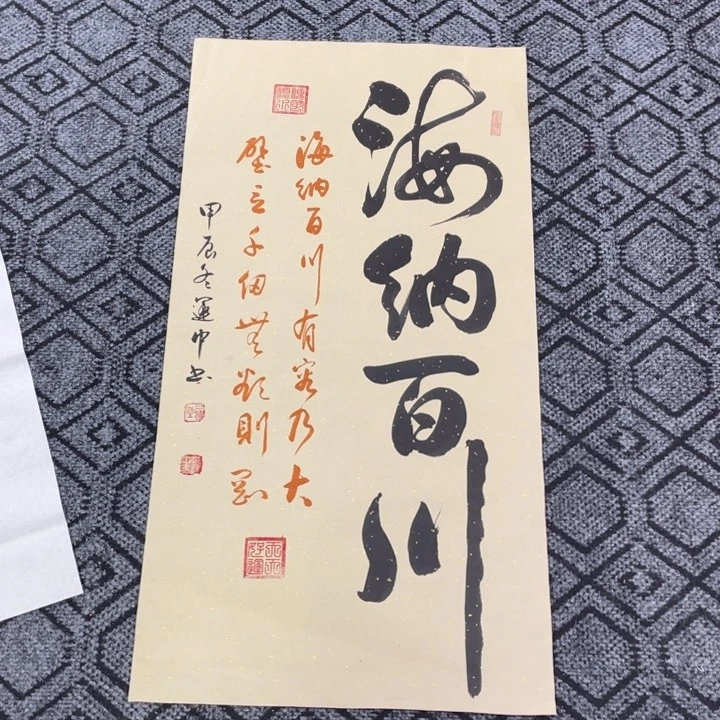 海纳百川
海纳百川有容乃大
壁立千仞無欲則剛
甲辰冬運中书